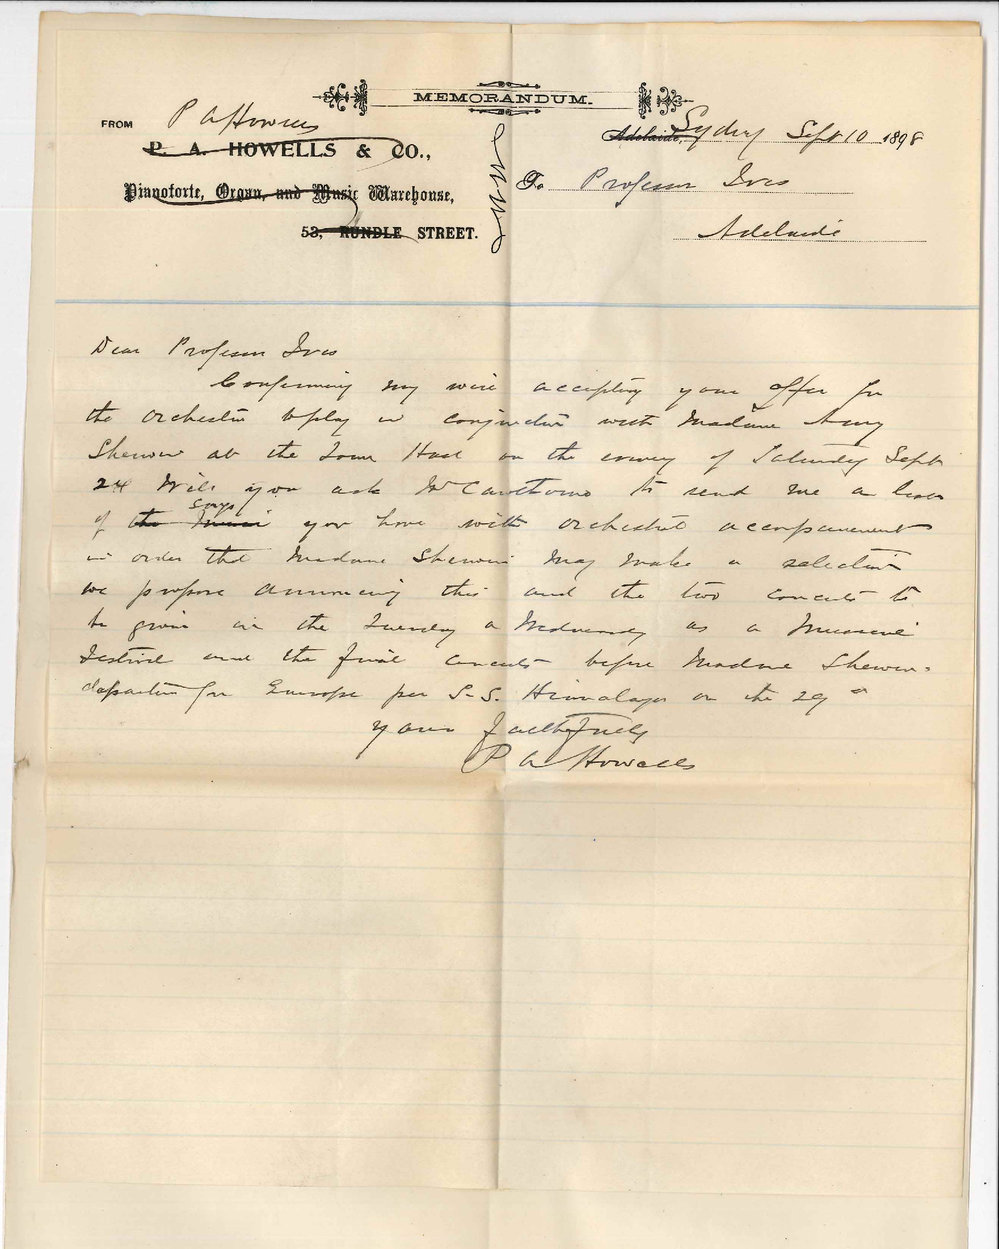 MEMORANDUM.
FROM P A Howells
P. A. HOWELLS & CO.,
Pianoforte, Organ, and Music Warehouse,
53, RUNDLE STREET.
Adelaide, Sydney Sept 10 1898
To Professor Ives
Adelaide
Dear Professor Ives
Confirming my wire accepting your offer for
the orchestra to play in conjunction with Madame Amy
Sherwin at the Town Hall on the evening of Saturday Sept
24 Will you ask Mr Cawthorne to send me a list
songs
of the Music you have with orchestral accompaniment
in order that Madame Sherwin may make a selection
we propose announcing this and the two concerts to
be given on the Tuesday & Wednesday as a Musical
Festival and the final concerts before Madame Sherwins
departure for Europe per S.S. Himalaya on the 29th
yours faithfully
P A Howells